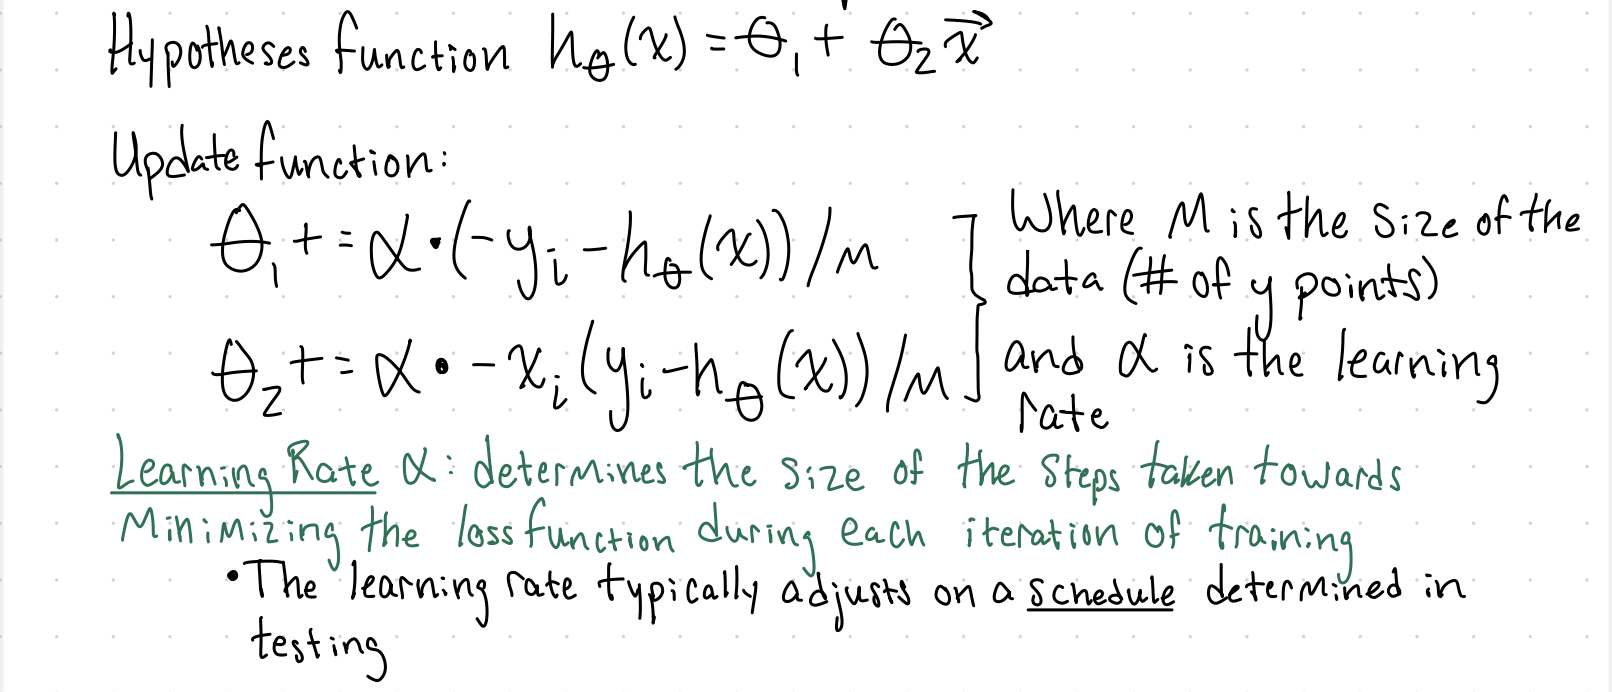 Hypotheses function h_θ(x) = θ₁ + θ₂x⃗
Update function:
θ₁ += α·(-yᵢ - h_θ(x))/M
Where M is the size of the
data (# of y points)
θ₂ += α · -xᵢ(yᵢ - h_θ(x))/M
and α is the learning
rate
Learning Rate α: determines the size of the steps taken towards
Minimizing the loss function during each iteration of training
• The learning rate typically adjusts on a schedule determined in
testing